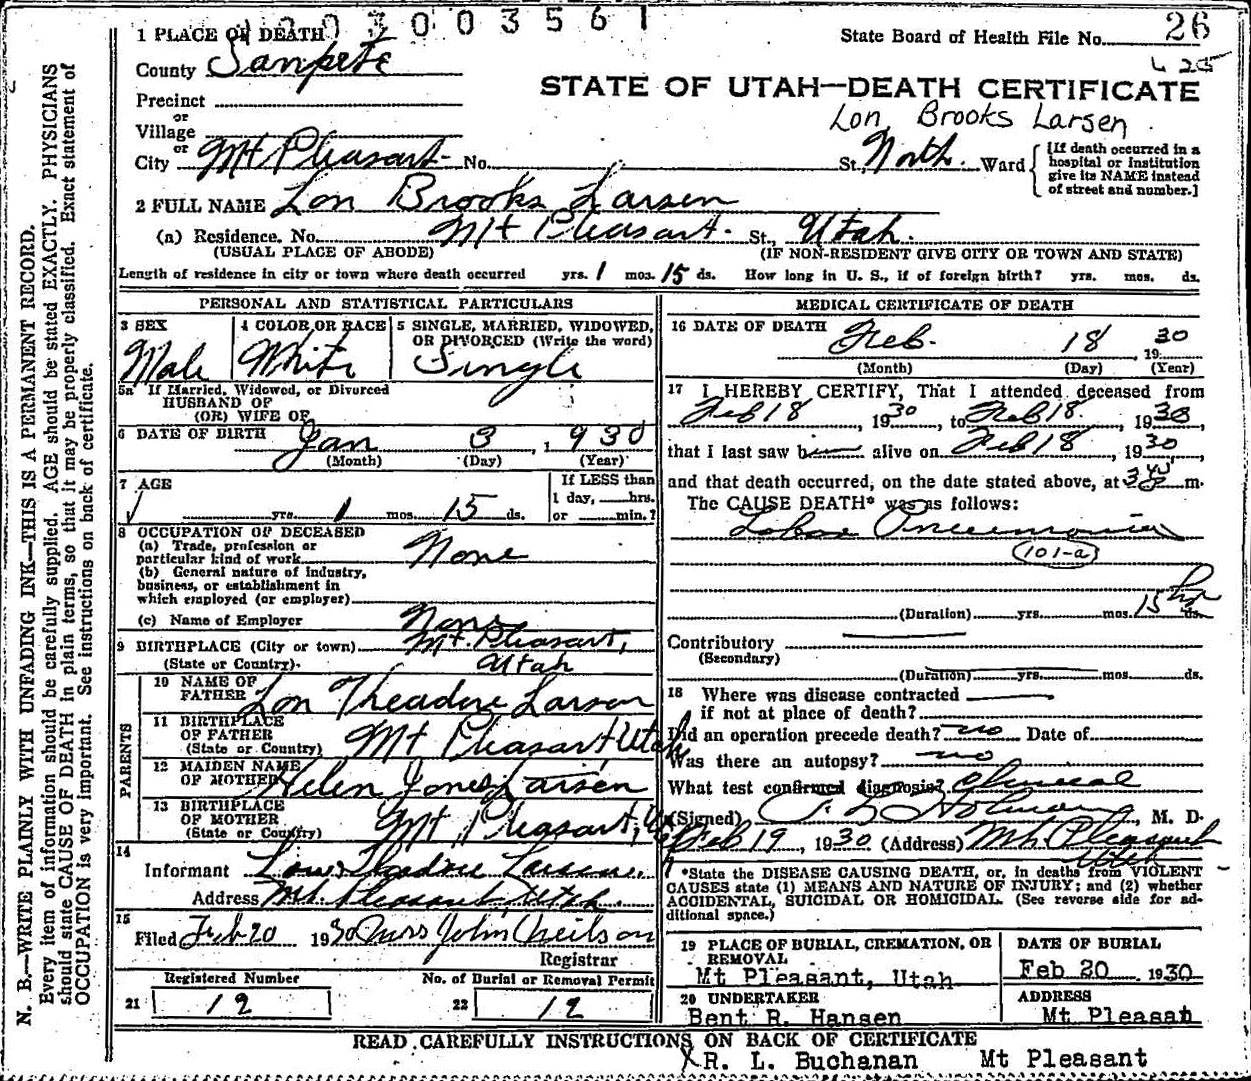 1203003561
26
State Board of Health File No.
425
1 PLACE OF DEATH
County Sanpete
Precinct
or
Village
or
City Mt Pleasant No. St., North Ward
STATE OF UTAH—DEATH CERTIFICATE
Lon Brooks Larsen
[If death occurred in a
hospital or institution
give its NAME instead
of street and number.]
2 FULL NAME Lon Brooks Larsen
(a) Residence. No. Mt Pleasant. St., Utah.
(USUAL PLACE OF ABODE) (IF NON-RESIDENT GIVE CITY OR TOWN AND STATE)
Length of residence in city or town where death occurred yrs. 1 mos. 15 ds. How long in U. S., if of foreign birth? yrs. mos. ds.
PERSONAL AND STATISTICAL PARTICULARS
3 SEX
Male
4 COLOR OR RACE
White
5 SINGLE, MARRIED, WIDOWED,
OR DIVORCED (Write the word)
Single
5a If Married, Widowed, or Divorced
HUSBAND OF
(OR) WIFE OF
6 DATE OF BIRTH Jan 3, 1930
(Month) (Day) (Year)
7 AGE
yrs. 1 mos. 15 ds.
If LESS than
1 day, hrs.
or min.?
8 OCCUPATION OF DECEASED
(a) Trade, profession or
particular kind of work None
(b) General nature of industry,
business, or establishment in
which employed (or employer)
(c) Name of Employer None
9 BIRTHPLACE (City or town) Mt. Pleasant,
(State or Country) Utah
PARENTS
10 NAME OF
FATHER Lon Theadore Larsen
11 BIRTHPLACE
OF FATHER
(State or Country) Mt Pleasant, Utah
12 MAIDEN NAME
OF MOTHER Helen Jones Larsen
13 BIRTHPLACE
OF MOTHER
(State or Country) Mt Pleasant,
14
Informant Theadore Larsen
Address Mt. Pleasant, Utah.
15
Filed Feb 20 1930 Mrs John Neilson
Registrar
Registered Number
21 12
No. of Burial or Removal Permit
22 12
MEDICAL CERTIFICATE OF DEATH
16 DATE OF DEATH Feb. 18, 1930
(Month) (Day) (Year)
17 I HEREBY CERTIFY, That I attended deceased from
Feb 18, 1930, to Feb 18, 1930,
that I last saw h alive on Feb 18, 1930,
and that death occurred, on the date stated above, at m.
The CAUSE DEATH* was as follows:
Lobar Pneumonia
101-a
(Duration) yrs. mos. 15 hrs ds.
Contributory
(Secondary)
(Duration) yrs. mos. ds.
18 Where was disease contracted
if not at place of death?
Did an operation precede death? no Date of
Was there an autopsy? no
What test confirmed diagnosis? Clinical
(Signed) Holman, M. D.
Feb 19, 1930 (Address) Mt. Pleasant
Utah
*State the DISEASE CAUSING DEATH, or, in deaths from VIOLENT
CAUSES state (1) MEANS AND NATURE OF INJURY; and (2) whether
ACCIDENTAL, SUICIDAL OR HOMICIDAL. (See reverse side for ad-
ditional space.)
19 PLACE OF BURIAL, CREMATION, OR
REMOVAL
Mt Pleasant, Utah
DATE OF BURIAL
Feb 20 1930
20 UNDERTAKER
Bent R. Hansen
ADDRESS
Mt Pleasant
READ CAREFULLY INSTRUCTIONS ON BACK OF CERTIFICATE
X R. L. Buchanan Mt Pleasant
N. B.—WRITE PLAINLY WITH UNFADING INK—THIS IS A PERMANENT RECORD.
Every item of information should be carefully supplied. AGE should be stated EXACTLY. PHYSICIANS
should state CAUSE OF DEATH in plain terms, so that it may be properly classified. Exact statement of
OCCUPATION is very important. See instructions on back of certificate.